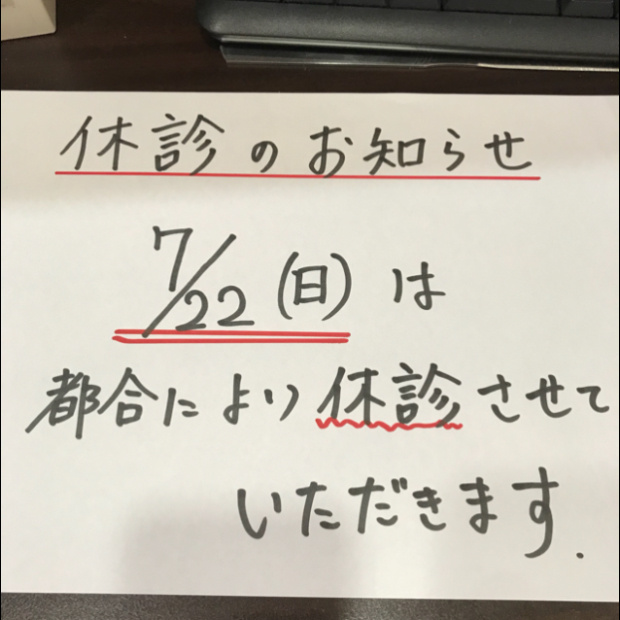 休診のお知らせ
7/22(日)は
都合により休診させて
いただきます.